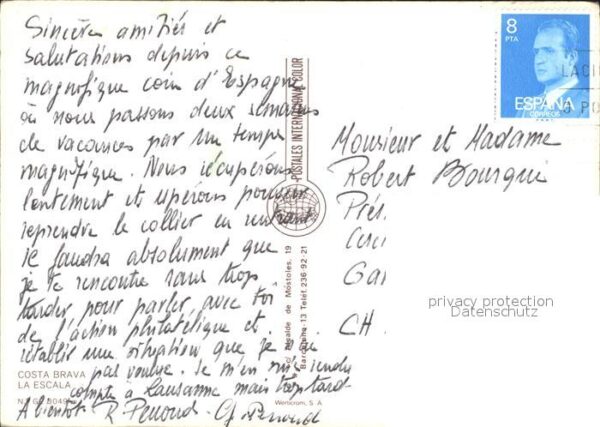 Sincères amitiés et
salutations depuis ce
magnifique coin d'Espagne
où nous passons deux semaines
de vacances par un temps
magnifique. Nous récupérons
lentement et espérons pouvoir
reprendre le collier en rentrant
Il faudra absolument que
je te rencontre sans trop
tarder pour parler avec toi
de l'action philatélique et
rétablir une situation que je
pas voulue. Je m'en suis rendu
compte à Lausanne mais trop tard
A bientôt. R. Penoud
COSTA BRAVA
LA ESCALA
POSTALES INTERNACIONAL COLOR
Alcalde de Móstoles, 19
Barcelona-13 Telef. 236-92-21
Werticrom, S. A.
8
PTA
ESPAÑA
CORREOS
Monsieur et Madame
Robert Bourqui
Prés
Ga
CH
privacy protection
Datenschutz